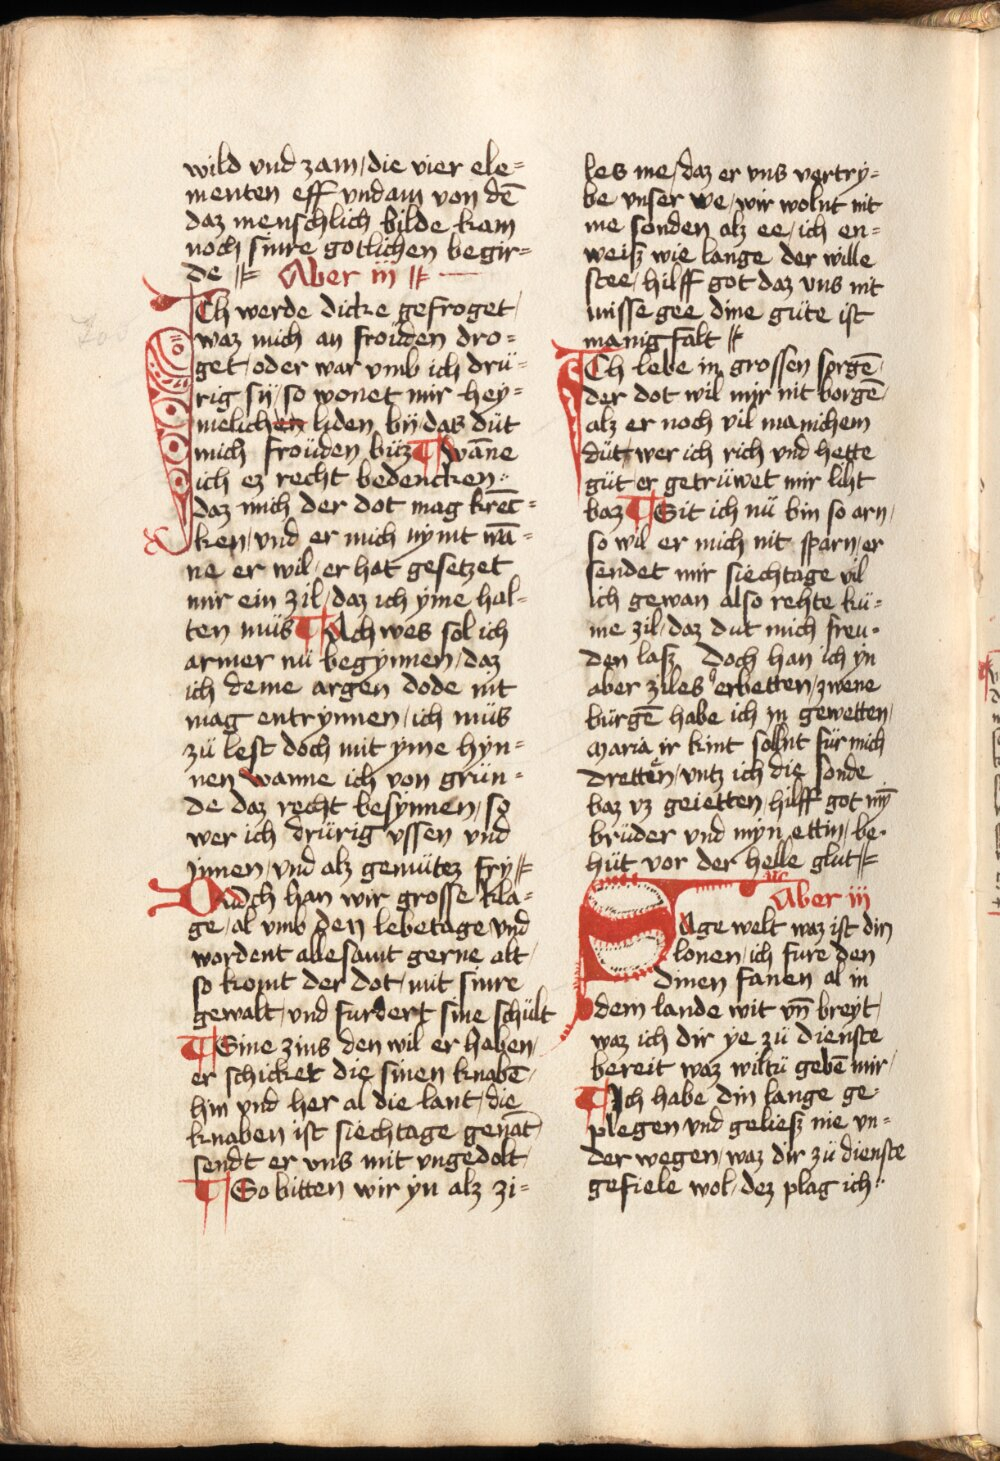 wild vnd zam/die vier ele=
menten eff vndam von dē
daz menschlich bilde kam
noch sinre gotlichen begir=
de Aber iij
Ich werde dicke gefroget/
waz mich an froüden dro=
get/oder war vmb ich drü=
rig sÿ/so wonet mir hey=
melichen liden bÿ/das düt
mich froüden büz wāne
ich ez recht bedencken
daz mich der dot mag krēc=
ken/vnd er mich nÿmt wā=
ne er wil/er hat gesetzet
mir ein zil/daz ich ÿme hal=
ten müs Ach wes sol ich
armer nü begÿnnen/daz
ich deme argen dode nit
mag entrÿnnen/ich müs
zü lest doch mit ÿme hÿn=
nen wanne ich von grün=
de daz recht besÿnnen/so
wer ich drürig vssen vnd
jnnen/vnd alz gemütez frÿ
Doch han wir grosse kla=
ge/al vmb den lebetage vnd
wordent abesamt gerne alt/
so komt der dot/mit sinre
gewalt/vnd furdert sine schült
Sine zins den wil er haben/
er schicket die sinen knabē/
hin vnd her al die lant/die
knaben ist siechtage genāt
sendt er vns mit vngedolt/
So bitten wir ÿn alz zi=
les me/daz er vns vertrÿ=
be vnser we/wir wolnt nit
me sonden alz ee/ich en=
weisz wie lange der wille
stee/hilff got daz vns nit
missegee dine güte ist
manigfalt
Ich lebe in grossen sorgē/
der dot wil mir nit borgē/
alz er noch vil manichem
düt/wer ich rich vnd hette
güt er getrüwet mir liht
baz Sit ich nü bin so arn/
so wil er mich nit sparn/er
sendet mir siechtage vil
ich gewan also rehte kü=
me zil/daz dut mich freu=
den lasz doch han ich ÿn
aber ziles erbetten/zwene
bürgē habe ich jn gewetten/
maria ir kint sollnt für mich
dretten/vntz ich die sonde
baz vz geietten/hilff got mÿ
brüder vnd mÿn ettin/be=
hüt vor der helle glut
Aber iij
Sage welt waz ist din
lonen/ich fure den
dinen fanen al in
dem lande wit vn̄ breÿt/
waz ich dir ÿe zü dienste
bereit waz wiltü gebē mir/
Ich habe din lange ge
plegen vnd geliesz nie vn=
der wegen/waz dir zü dienste
gefiele wol/dez plag ich